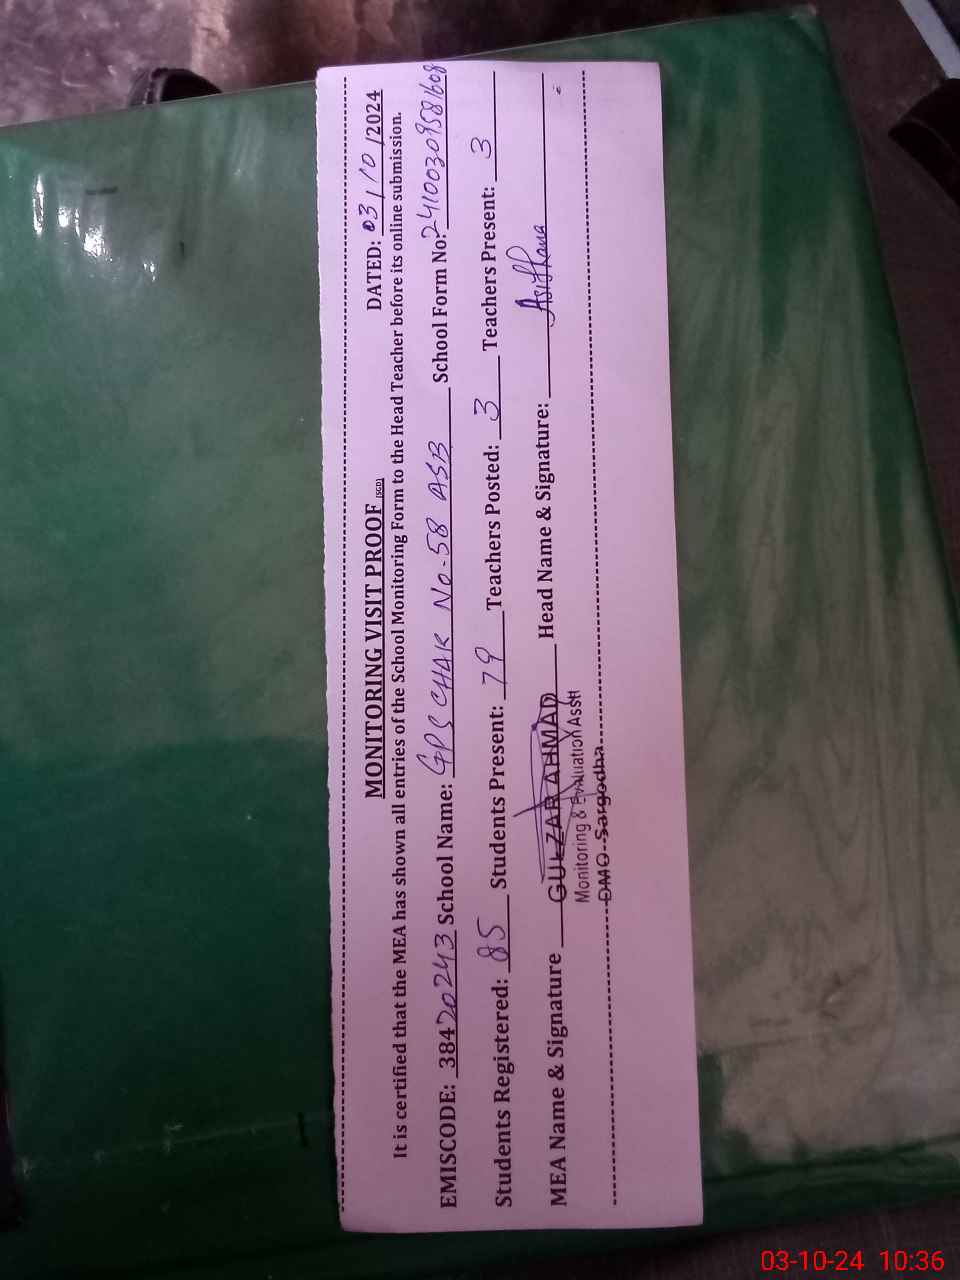 MONITORING VISIT PROOF (SGD) DATED: 03/10/2024
It is certified that the MEA has shown all entries of the School Monitoring Form to the Head Teacher before its online submission.
EMISCODE: 38420243 School Name: GPS CHAK No-58 ASB School Form No: 24100309581608
Students Registered: 85 Students Present: 79 Teachers Posted: 3 Teachers Present: 3
MEA Name & Signature GULZAR AHMAD Head Name & Signature:
Monitoring & Evaluation Asstt
DMO Sargodha
03-10-24 10:36